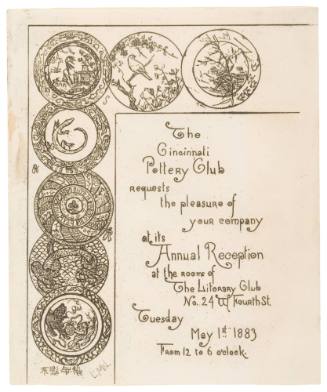 The
Cincinnati
Pottery Club
requests
the pleasure of
your company
at its
Annual Reception
at the rooms of
The Literary Club
No. 24 W Fourth St.
Tuesday
May 1st 1883
From 12 to 6 o'clock.